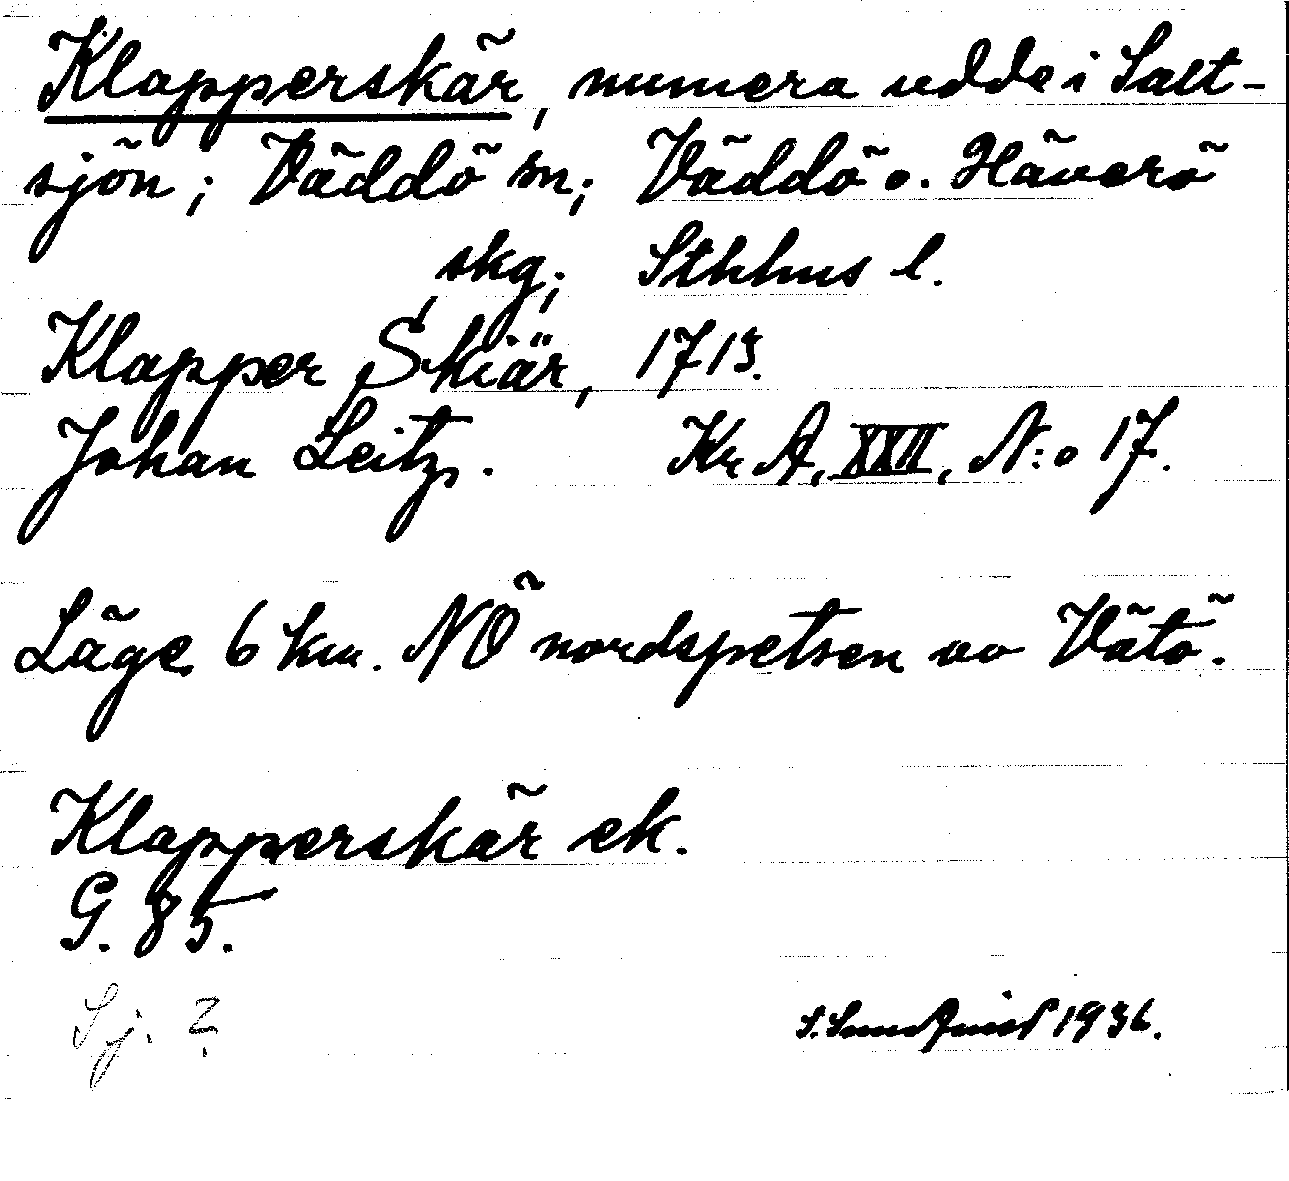 Klapperskär, numera udde i Salt-
sjön; Väddö sn; Väddö o. Häverö
skg; Sthlms l.
Klapper Skiär, 1713.
Johan Leitz. Kr A, XXII, N:o 17.
Läge 6 km. NÖ nordspetsen av Vätö.
Klapperskär ek.
G. 85.
Sj. 2
S. Sundquist 1936.